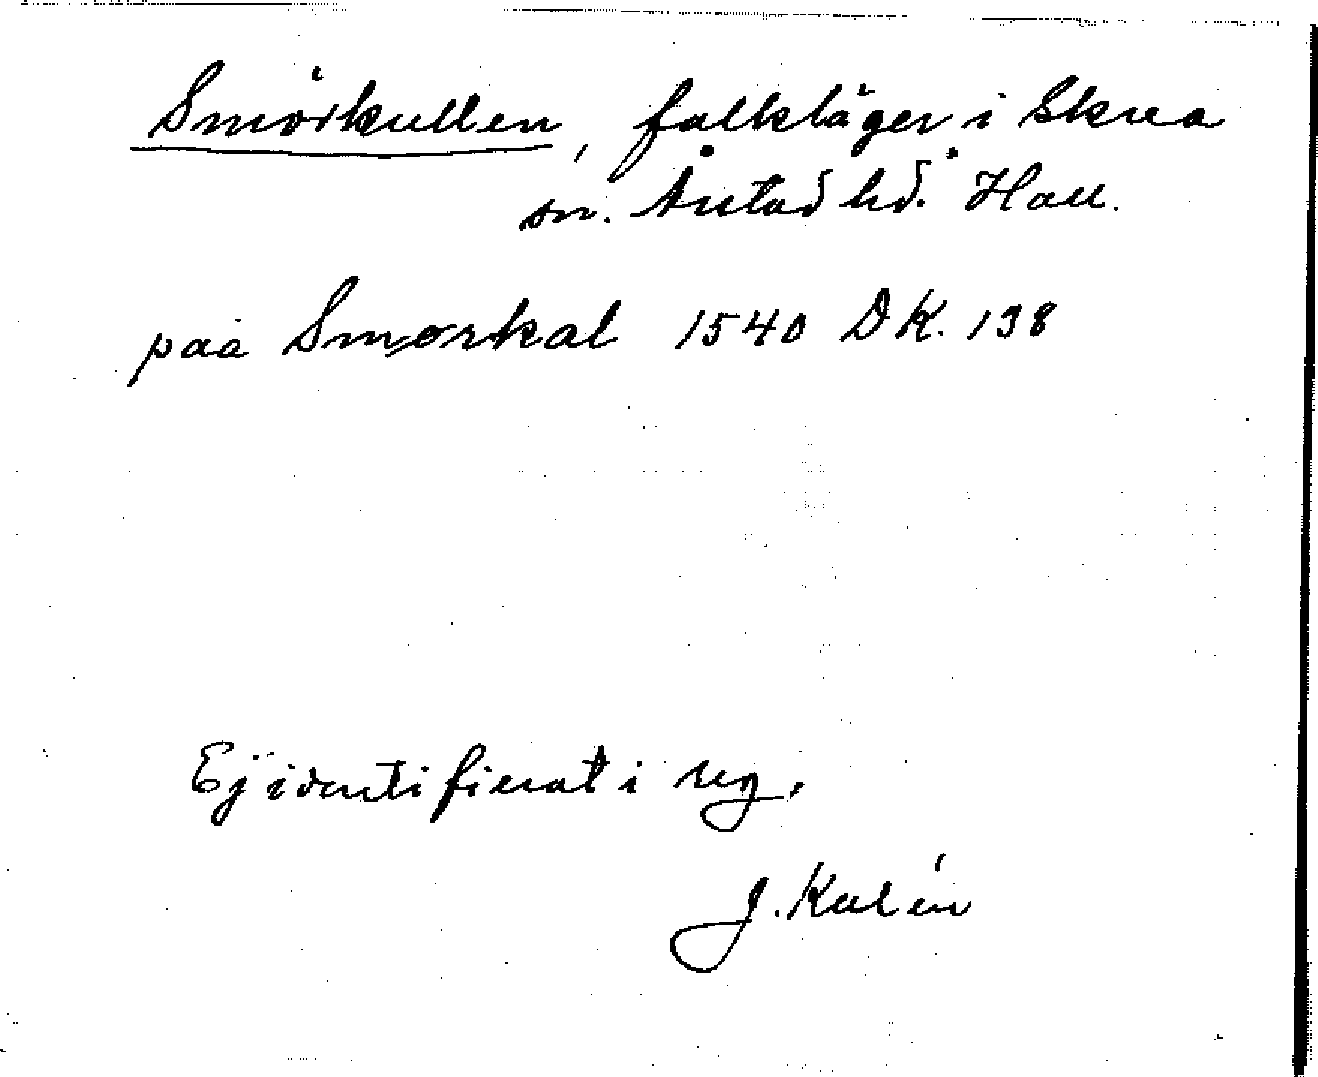 Smörkullen, folkläger i Skrea
sn. Årstad hd. Hall.
paa Smørkal 1540 DK. 198
Ej identifierat i reg.
J. Kalén